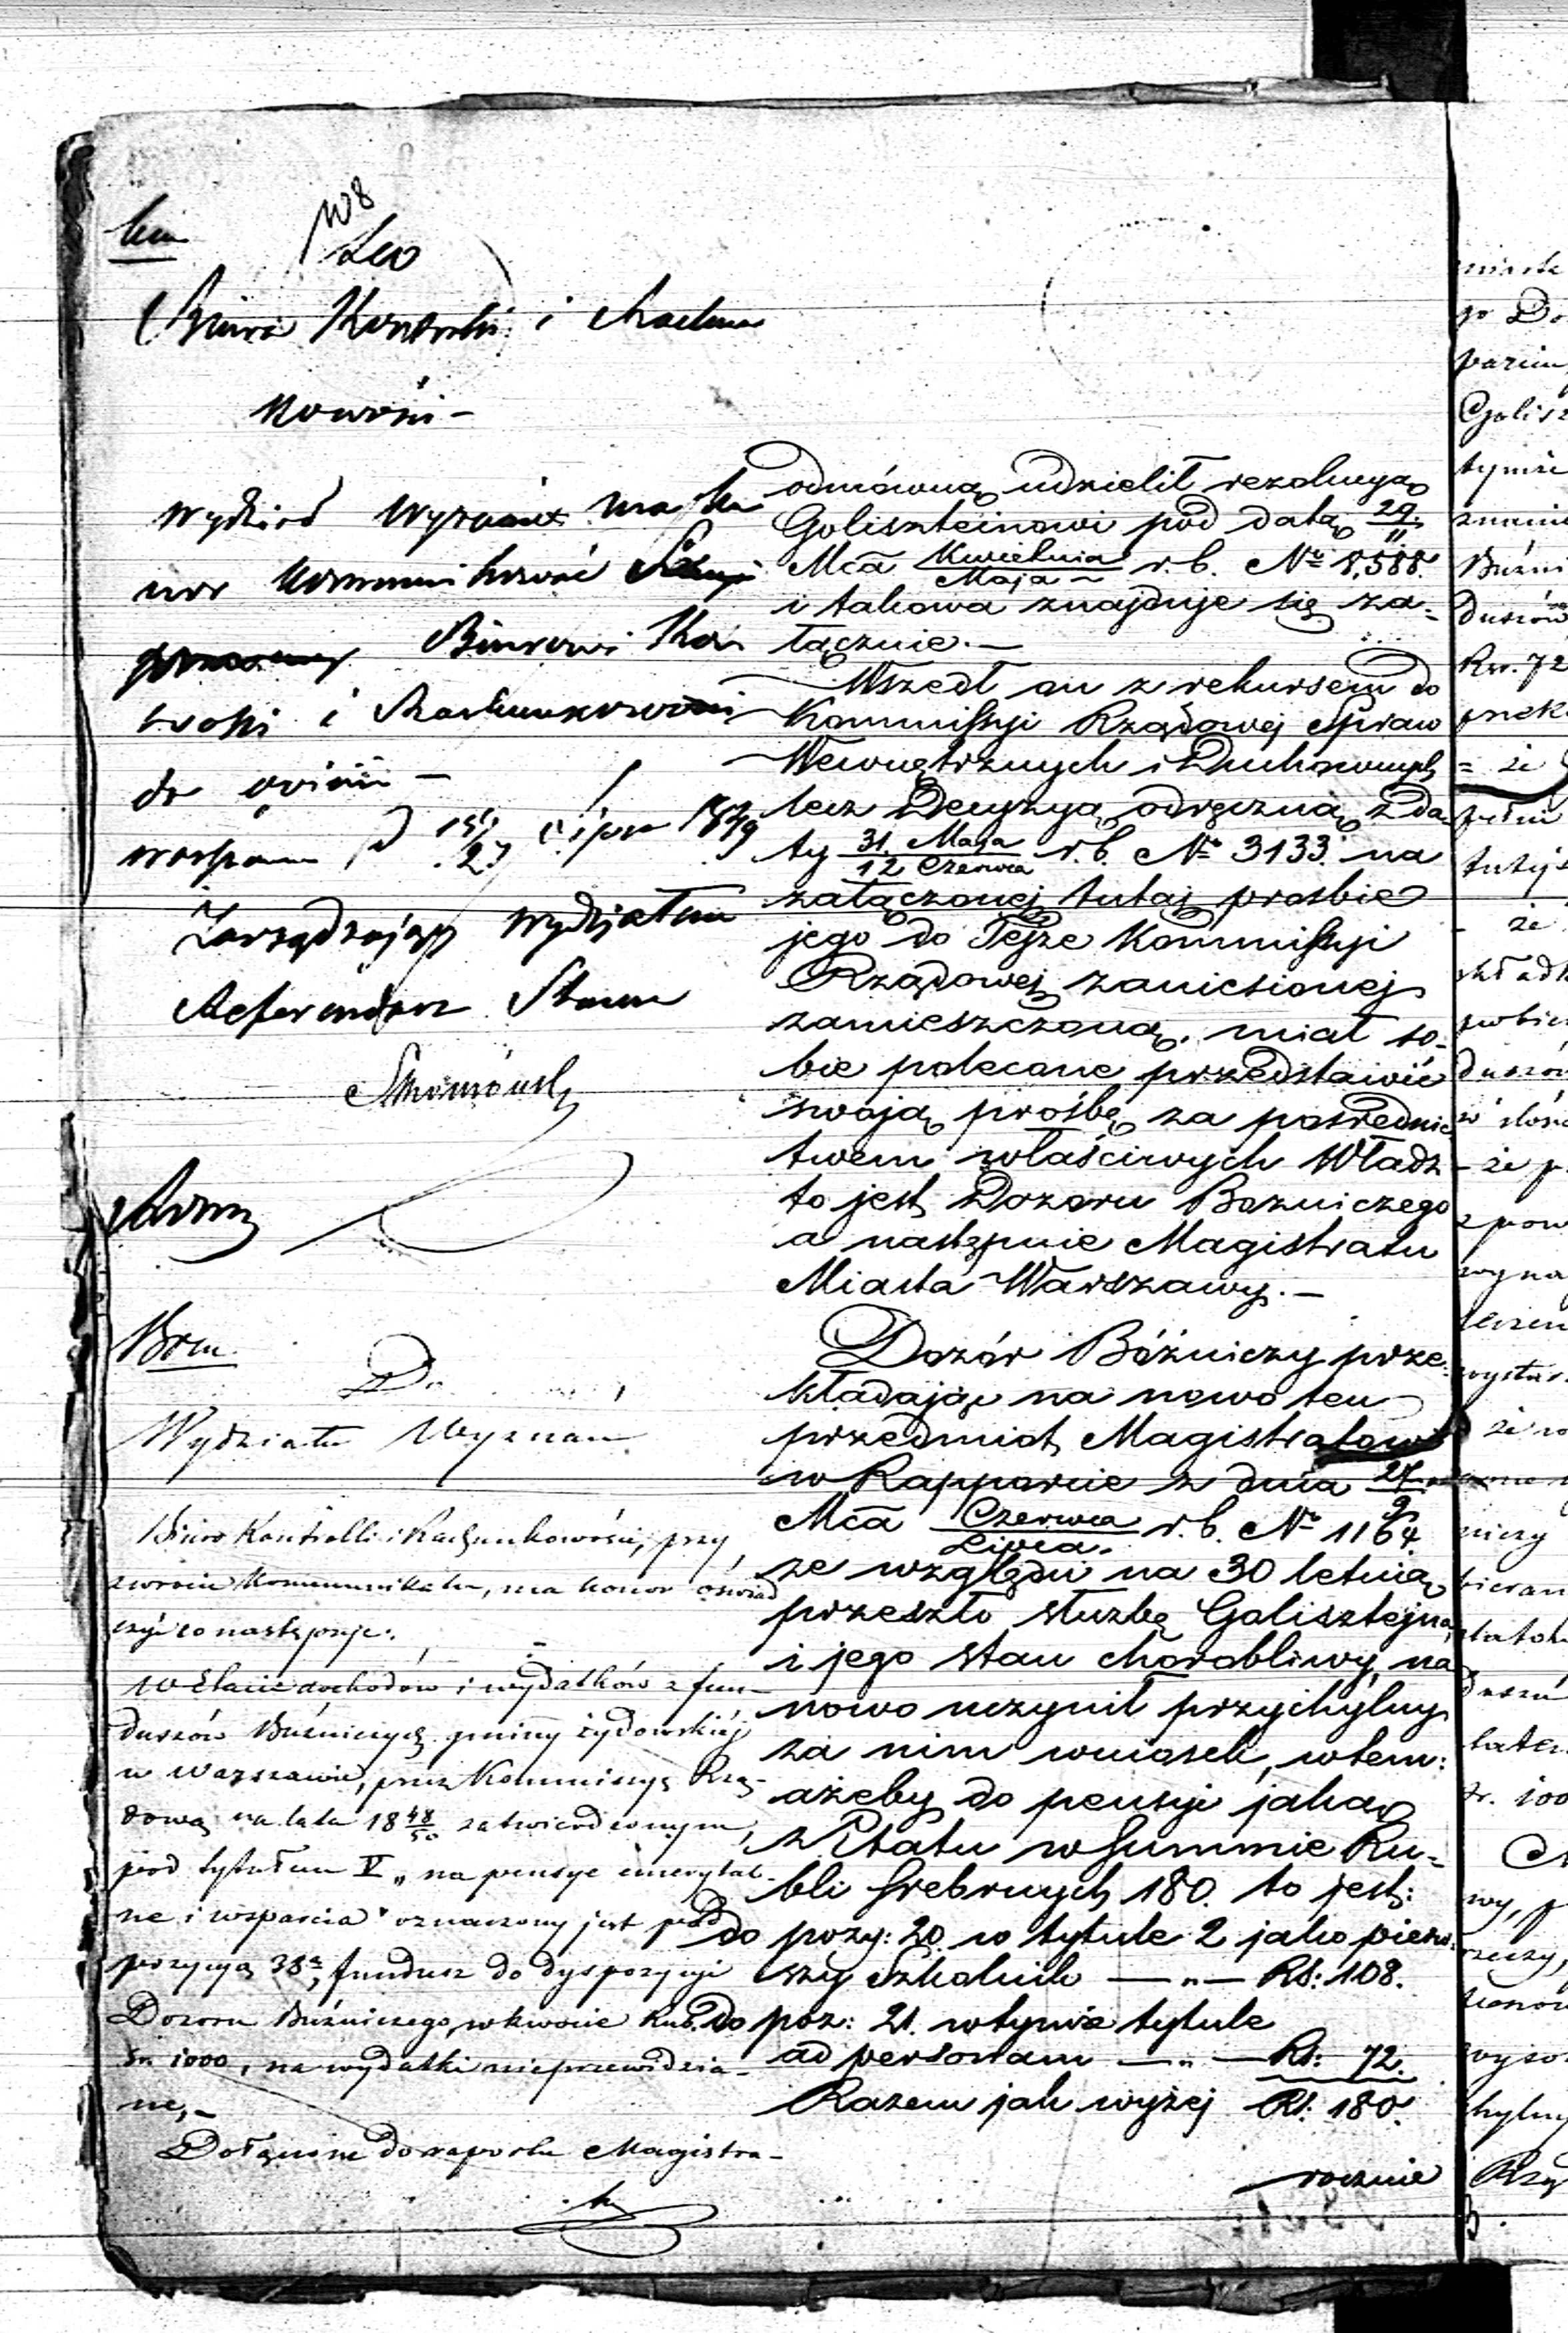 Do
Biura Kontroli i Rachun
kowości –
Wydział Wyznań ma ho
nor kommunikować
Biurowi Kon
troli i Rachunkowości
do opinii –
Warszawa d 15/27 Lipca 1849
Zarządzający Wydziałem
Referendarz Stanu
Do
Wydziału Wyznań.
Biuro Kontrolli i Rachunkowości, przy
zwrocie kommunikatu, ma honor oświad
czyć co następuje:
W Etacie dochodów i wydatków z fun-
duszów Bużniczych gminy żydowskiéj
w Warszawie, przez Kommissyę Rzą-
dową na lata 18 48/50 zatwierdzonym,
pod tytułem V „na pensye emerytal-
ne i wsparcia" oznaczony jest pod
pozycyą 38ą, fundusz do dyspozycyi
Dozoru Bużniczego, w kwocie Rub.
Sr. 1000, na wydatki nieprzewidzia-
ne, –
Dołączone do raportu Magistra-
odmówną udzielił rezolucyą
Goliszteinowi pod datą 29/11
Mca Kwietnia/Maja r. b. No 8,588.
i takowa znajduje się za-
łącznie. –
Wszedł on z rekursem do
Kommissyi Rządowej Spraw
Wewnętrznych i Duchownych
lecz Decyzyą odręczną z da-
ty 31 Maja/12 Czerwca r. b. No 3133. na
załączonej tutaj prośbie
jego do Tejże Kommissyi
Rządowej zaniesionej
zamieszczoną, miał so-
bie polecone przedstawić
swoją prośbę za pośrednic
twem właściwych Władz
to jest Dozoru Bożniczego
a następnie Magistratu
Miasta Warszawy. –
Dozór Bóżniczy prze-
kładając na nowo ten
przedmiot Magistratowi
w Rapporcie z dnia 27/9
Mca Czerwca/Lipca r. b. No 1164
ze względu na 30 letnią
przeszło służbę Galisztejna
i jego stan chorobliwy, na
nowo uczynił przychylny
za nim wniosek, w tem:
ażeby do pensyi jaką
z Etatu w Summie Ru-
bli Srebrnych 180. to jest:
do pozy: 20. w tytule 2 jako pierw-
szy Szkolnik — „ — Rs: 108.
do poz: 21. w tymże tytule
ad personam — „ — Rs: 72.
Razem jak wyżej Rs. 180.
rocznie